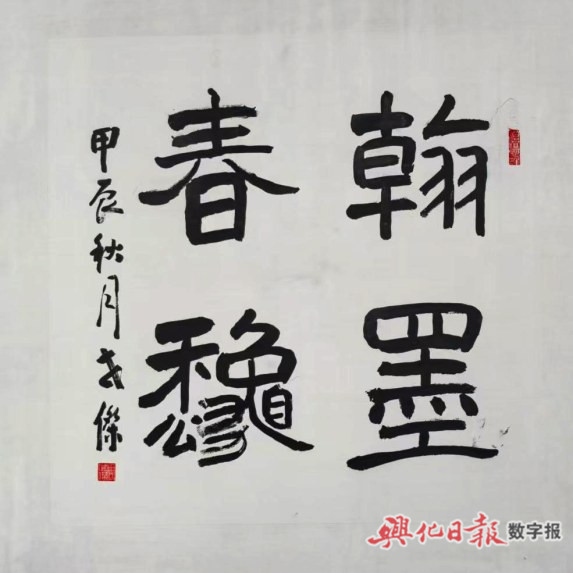 翰墨
春龝
甲辰秋月傑
興化日報 数字报